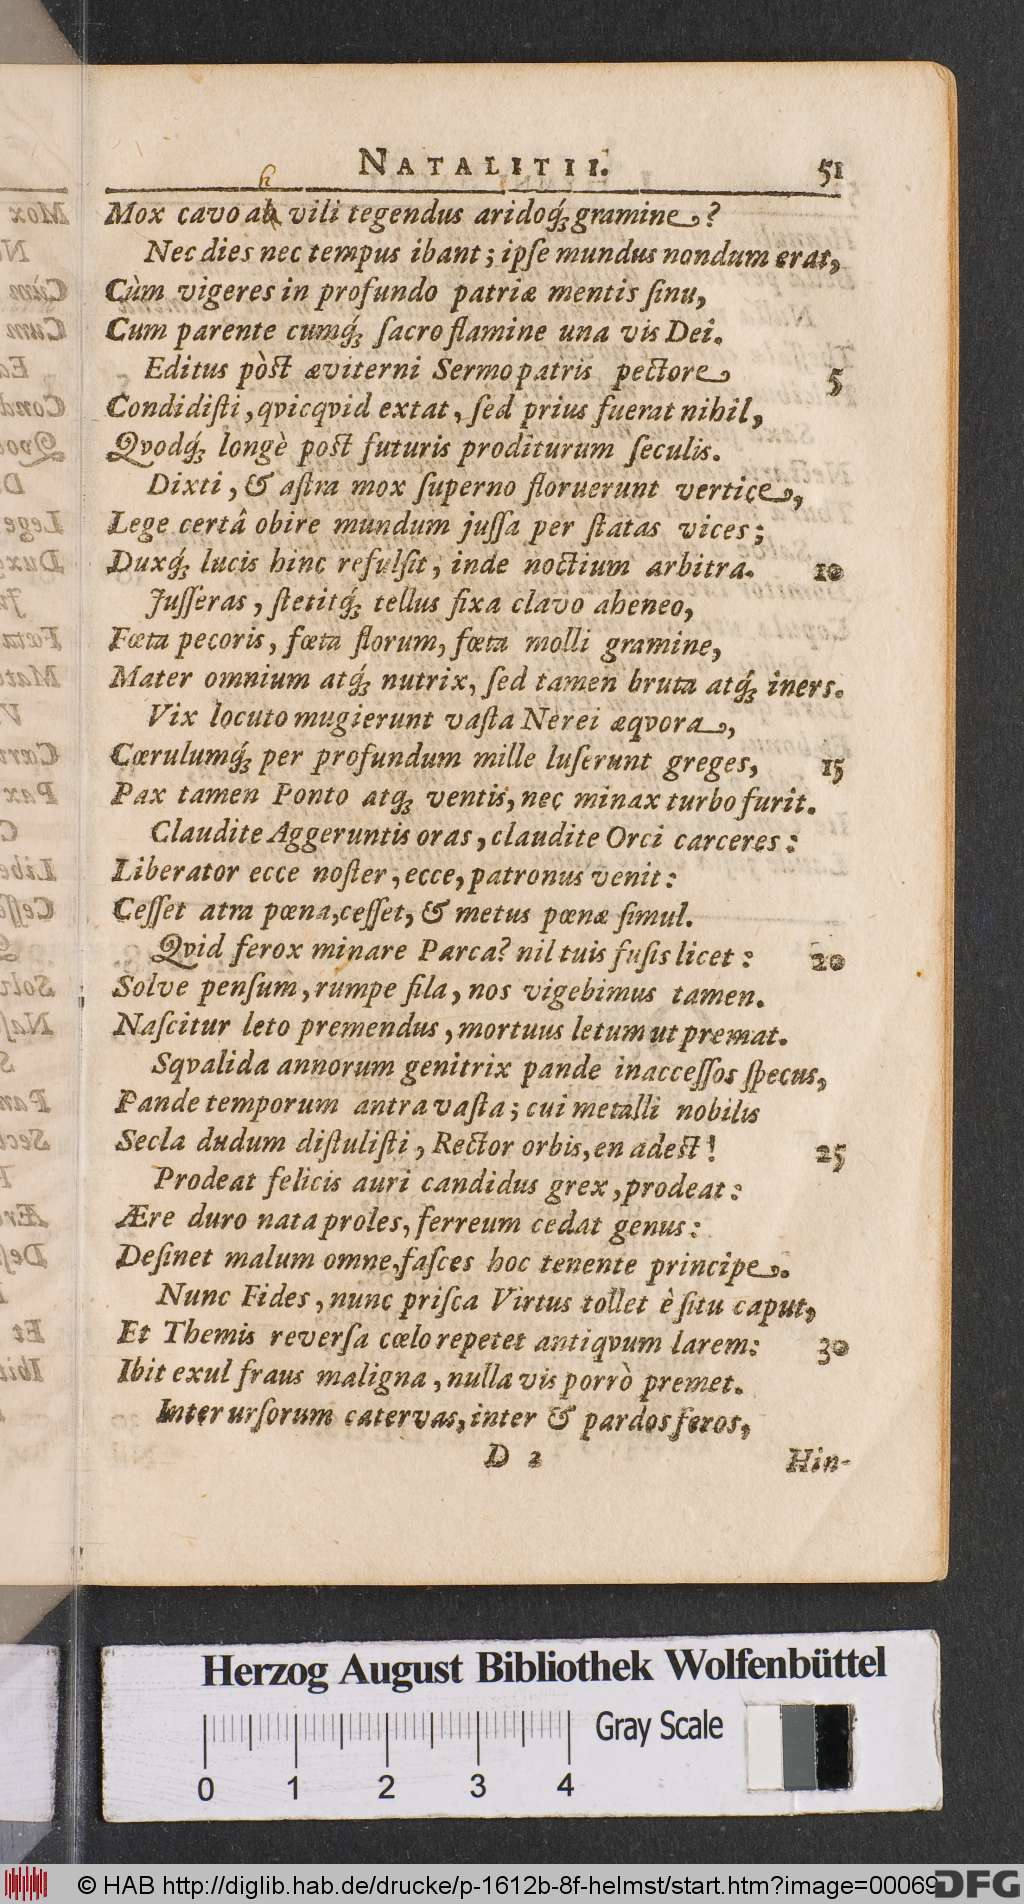 NATALITII. 51
h
Mox cavo ah vili tegendus aridoq́; gramine?
Nec dies nec tempus ibant; ipſe mundus nondum erat,
Cùm vigeres in profundo patriæ mentis ſinu,
Cum parente cumq́; ſacro flamine una vis Dei.
Editus pòst æviterni Sermo patris pectore 5
Condidiſti, qvicqvid extat, ſed prius fuerat nihil,
Qvodq́; longè post futuris proditurum ſeculis.
Dixti, & aſtra mox ſuperno floruerunt vertice,
Lege certâ obire mundum juſſa per ſtatas vices;
Duxq́; lucis hinc refulſit, inde noctium arbitra. 10
Juſſeras, ſtetitq́; tellus fixa clavo aheneo,
Fœta pecoris, fœta florum, fœta molli gramine,
Mater omnium atq́; nutrix, ſed tamen bruta atq́; iners.
Vix locuto mugierunt vaſta Nerei æqvora,
Cœrulumq́; per profundum mille luſerunt greges, 15
Pax tamen Ponto atq; ventis, nec minax turbo furit.
Claudite Aggeruntis oras, claudite Orci carceres:
Liberator ecce noſter, ecce, patronus venit:
Ceſſet atra pœna, ceſſet, & metus pœnæ ſimul.
Qvid ferox minare Parca? nil tuis fuſis licet: 20
Solve penſum, rumpe fila, nos vigebimus tamen.
Naſcitur leto premendus, mortuus letum ut premat.
Sqvalida annorum genitrix pande inacceſſos ſpecus,
Pande temporum antra vaſta; cui metalli nobilis
Secla dudum diſtuliſti, Rector orbis, en adest! 25
Prodeat felicis auri candidus grex, prodeat:
Ære duro nata proles, ferreum cedat genus:
Deſinet malum omne, faſces hoc tenente principe.
Nunc Fides, nunc priſca Virtus tollet è ſitu caput,
Et Themis reverſa cœlo repetet antiqvum larem: 30
Ibit exul fraus maligna, nulla vis porrò premet.
Inter urſorum catervas, inter & pardos feros,
D 2 Hin-
Herzog August Bibliothek Wolfenbüttel
Gray Scale
0 1 2 3 4
© HAB http://diglib.hab.de/drucke/p-1612b-8f-helmst/start.htm?image=00069
DFG